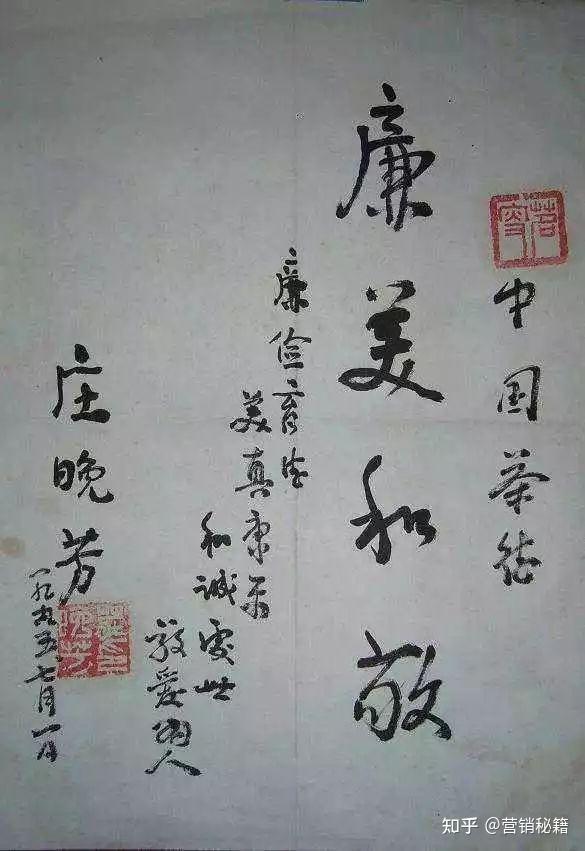 茗叟
中国茶德
廉美和敬
廉俭育德
美真康乐
和诚處世
敬爱为人
庄晚芳
一九九五、七月一日
知乎 @营销秘籍